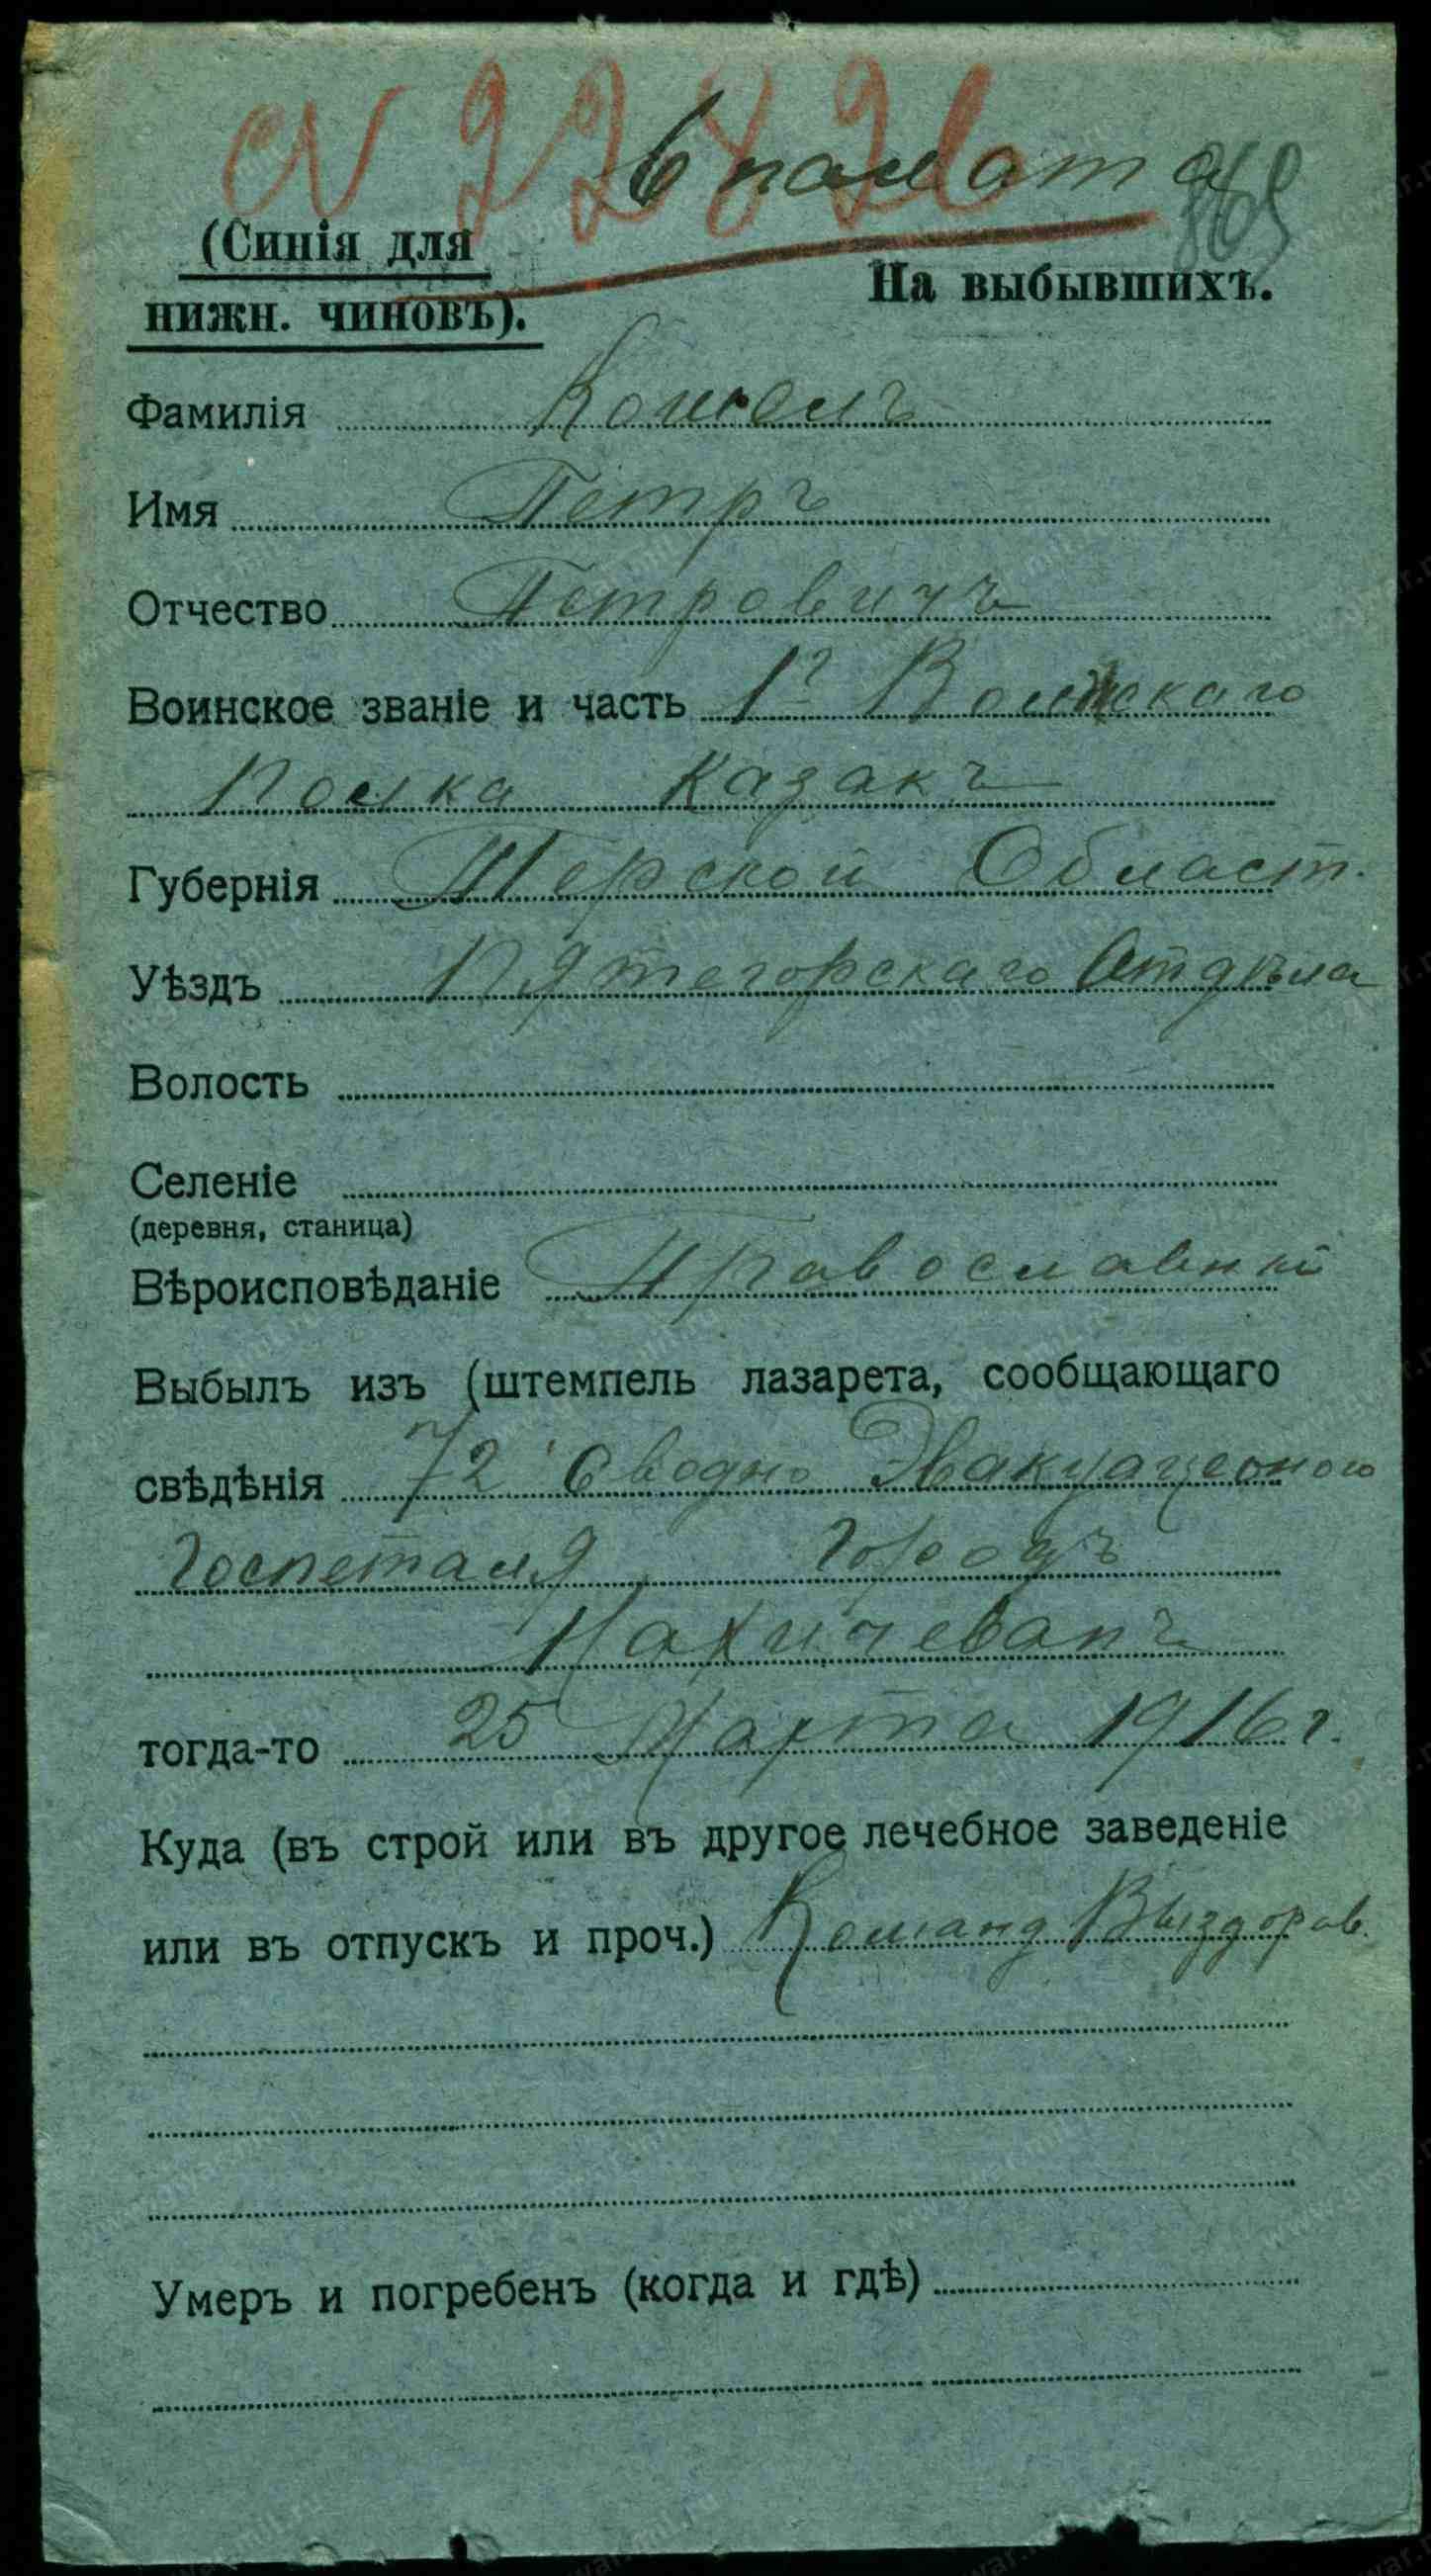 № 22826
6 палата
869
(Синія для
нижн. чиновъ).
На выбывшихъ.
Фамилія Кошель
Имя Петръ
Отчество Петровичъ
Воинское званіе и часть 1го Волжскаго
Полка Казакъ
Губернія Терской Област.
Уѣздъ Пятегорскаго Отдѣла
Волость
Селеніе
(деревня, станица)
Вѣроисповѣданіе Православний
Выбылъ изъ (штемпель лазарета, сообщающаго
свѣдѣнія 72 Сводно Эвакуаціоного
Госпеталя городъ
Нахичевань
тогда-то 25 Марта 1916 г.
Куда (въ строй или въ другое лечебное заведеніе
или въ отпускъ и проч.) Команд Выздоров.
Умеръ и погребенъ (когда и гдѣ)